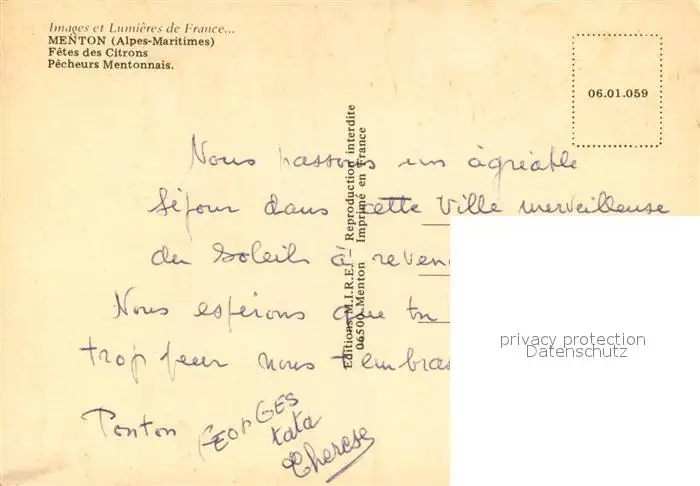 Images et Lumières de France...
MENTON (Alpes-Maritimes)
Fêtes des Citrons
Pêcheurs Mentonnais.
06.01.059
Editions M.I.R.E.I — Reproduction interdite
06500 Menton Imprimé en France
Nous passons un agréable
séjour dans cette Ville merveilleuse
du soleil à
Nous espérons que tu
trop peur nous t'embras
Tonton GEORGES
tata
Therese
privacy protection
Datenschutz